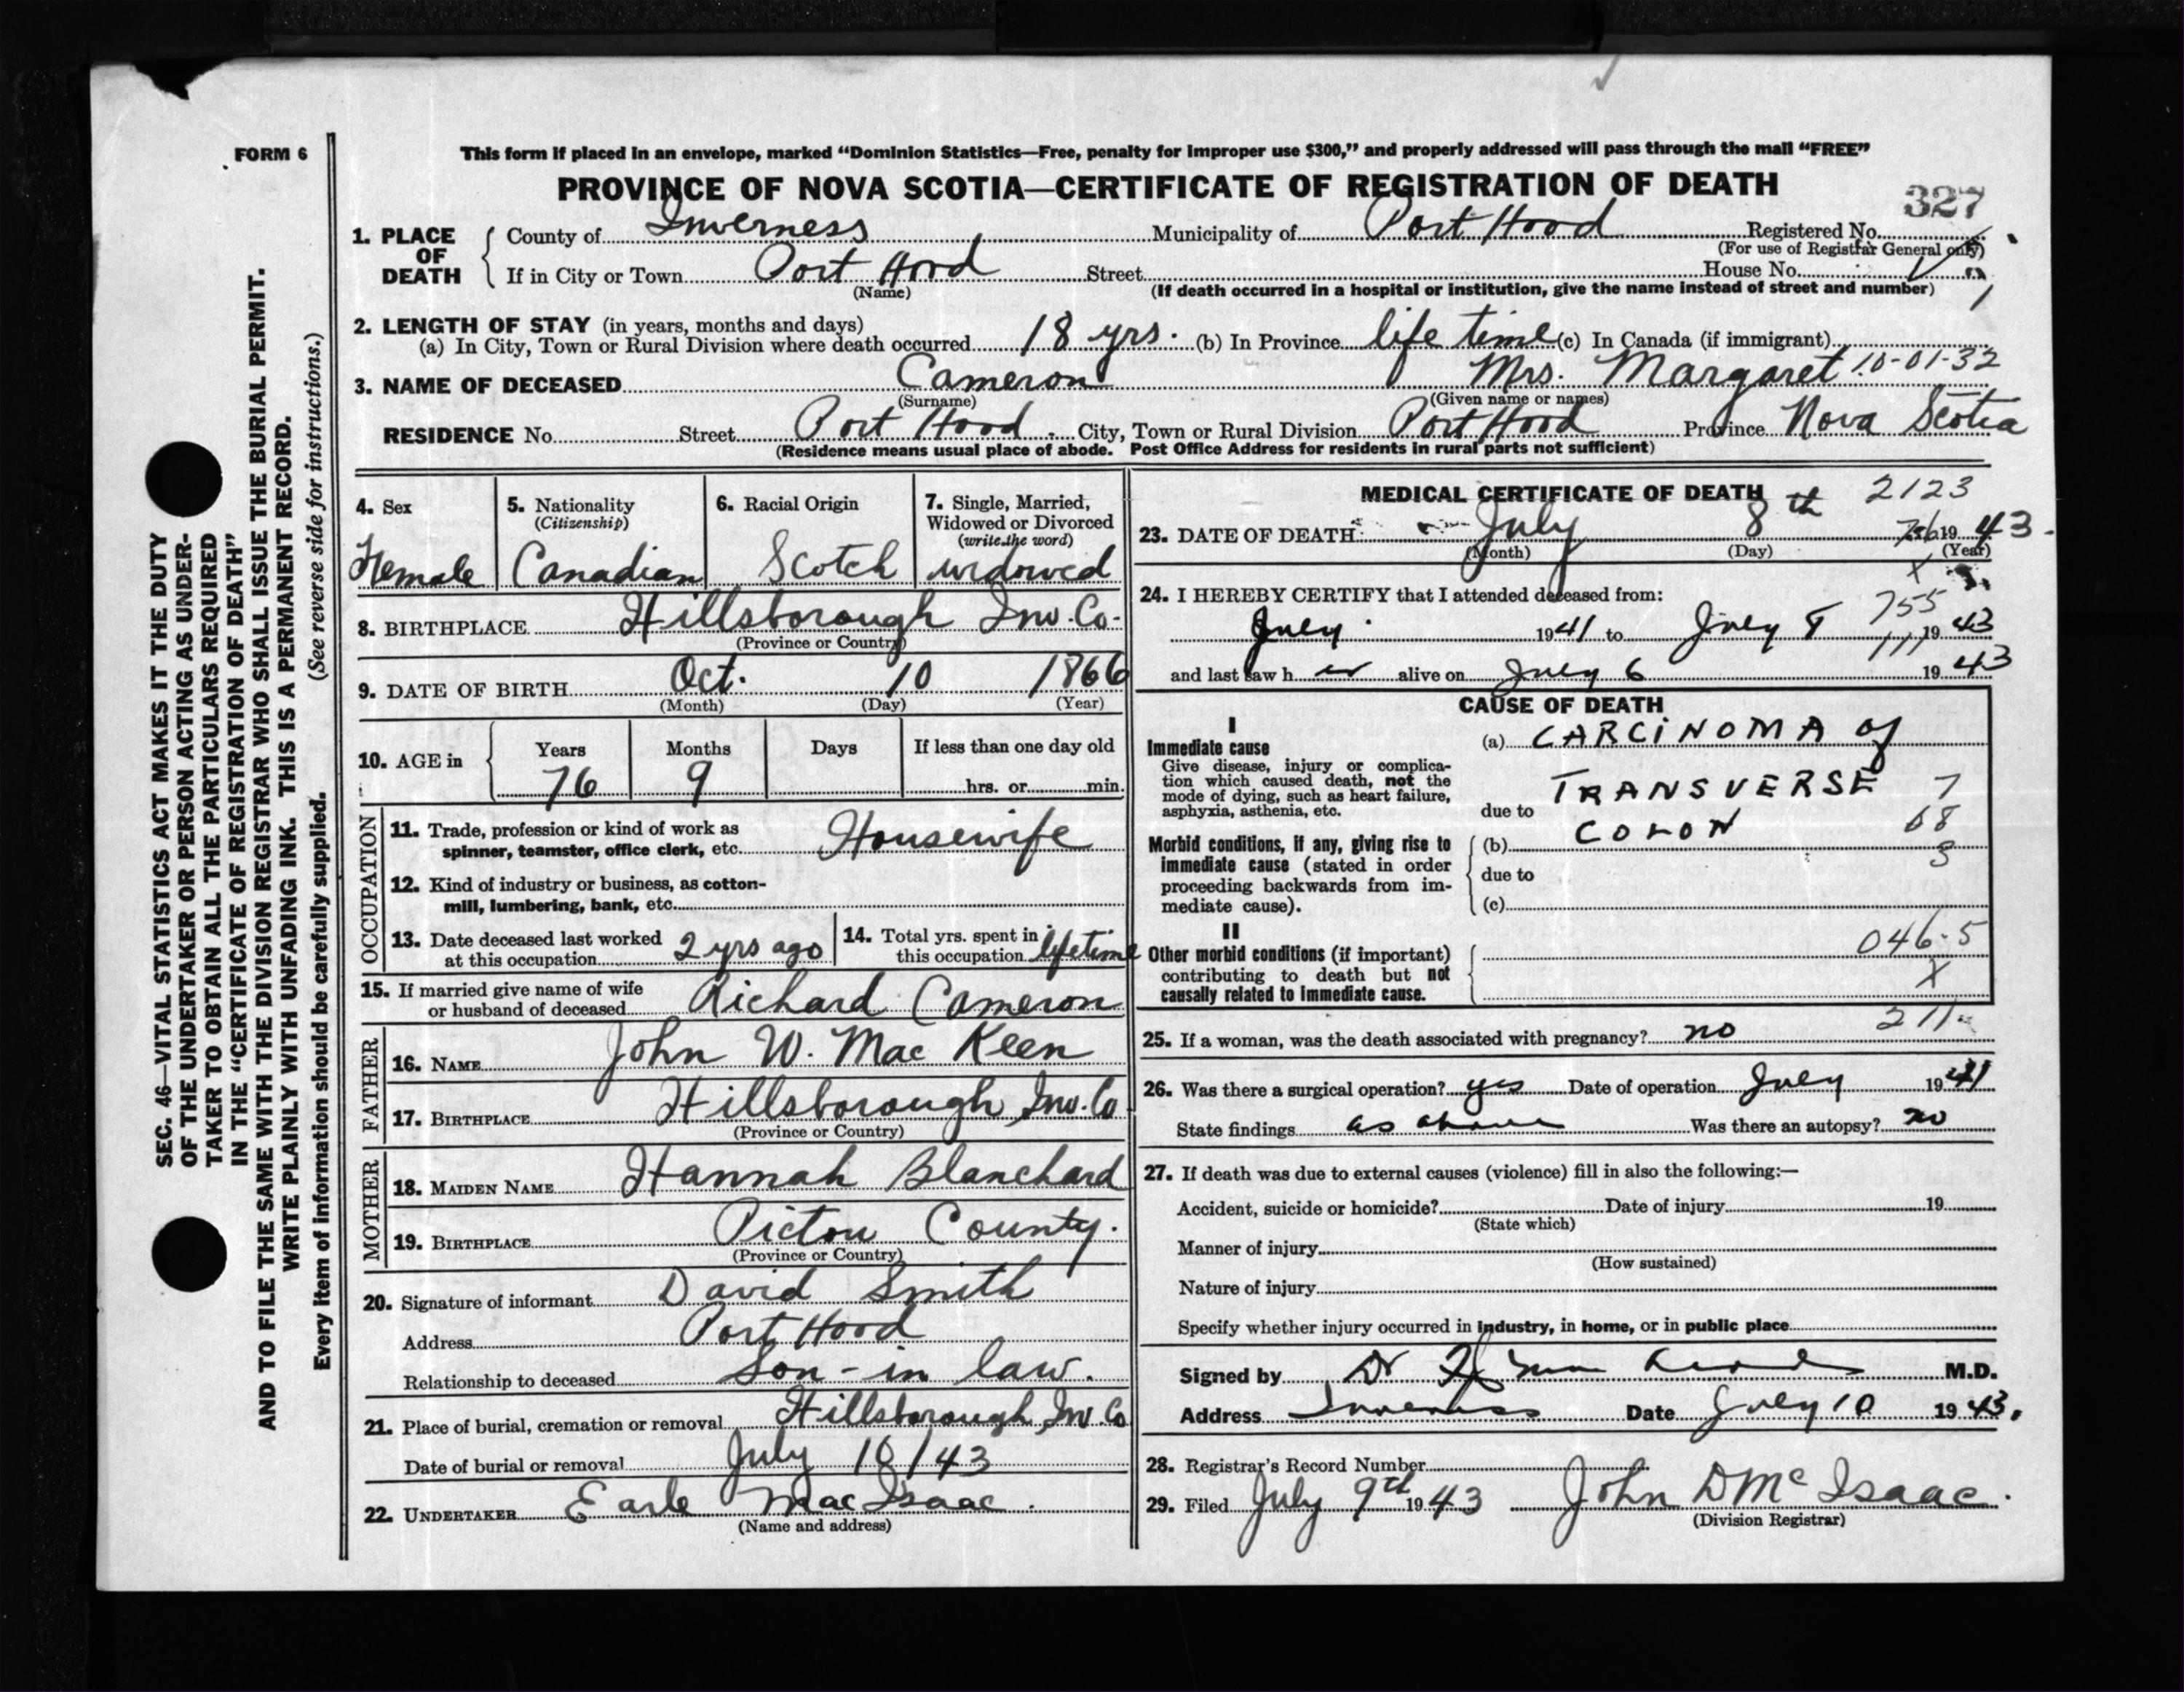 FORM 6
This form if placed in an envelope, marked “Dominion Statistics—Free, penalty for improper use $300,” and properly addressed will pass through the mail “FREE”
PROVINCE OF NOVA SCOTIA—CERTIFICATE OF REGISTRATION OF DEATH
327
1. PLACE OF DEATH County of Inverness Municipality of Port Hood Registered No.
(For use of Registrar General only)
If in City or Town Port Hood Street House No.
(Name) (If death occurred in a hospital or institution, give the name instead of street and number)
2. LENGTH OF STAY (in years, months and days)
(a) In City, Town or Rural Division where death occurred 18 yrs. (b) In Province life time (c) In Canada (if immigrant)
3. NAME OF DECEASED Cameron Mrs. Margaret 10-01-32
(Surname) (Given name or names)
RESIDENCE No. Street Port Hood. City, Town or Rural Division Port Hood Province Nova Scotia
(Residence means usual place of abode. Post Office Address for residents in rural parts not sufficient)
4. Sex Female
5. Nationality (Citizenship) Canadian
6. Racial Origin Scotch
7. Single, Married, Widowed or Divorced (write the word) widowed
8. BIRTHPLACE Hillsborough Inv. Co.
(Province or Country)
9. DATE OF BIRTH Oct. 10 1866
(Month) (Day) (Year)
10. AGE in Years 76 Months 9 Days If less than one day old hrs. or min.
OCCUPATION
11. Trade, profession or kind of work as spinner, teamster, office clerk, etc. Housewife
12. Kind of industry or business, as cotton-mill, lumbering, bank, etc.
13. Date deceased last worked at this occupation 2 yrs ago
14. Total yrs. spent in this occupation lifetime
15. If married give name of wife or husband of deceased Richard Cameron
FATHER
16. NAME John W. Mac Keen
17. BIRTHPLACE Hillsborough, Inv. Co
(Province or Country)
MOTHER
18. MAIDEN NAME Hannah Blanchard
19. BIRTHPLACE Pictou County.
(Province or Country)
20. Signature of informant David Smith
Address Port Hood
Relationship to deceased Son-in law.
21. Place of burial, cremation or removal Hillsborough, Inv. Co
Date of burial or removal July 10/43
22. UNDERTAKER Earle MacIsaac.
(Name and address)
MEDICAL CERTIFICATE OF DEATH 2123
23. DATE OF DEATH July 8th 1943.
(Month) (Day) (Year)
24. I HEREBY CERTIFY that I attended deceased from: 755
July 1941 to July 8 1943
111
and last saw her alive on July 6 1943
CAUSE OF DEATH
I
Immediate cause
Give disease, injury or complication which caused death, not the mode of dying, such as heart failure, asphyxia, asthenia, etc.
(a) CARCINOMA of
TRANSVERSE 7
due to
COLON 68
Morbid conditions, if any, giving rise to immediate cause (stated in order proceeding backwards from immediate cause).
(b) 3
due to
(c)
II
Other morbid conditions (if important) contributing to death but not causally related to immediate cause.
046.5
X
211
25. If a woman, was the death associated with pregnancy? no
26. Was there a surgical operation? yes Date of operation July 1941
State findings as above Was there an autopsy? no
27. If death was due to external causes (violence) fill in also the following:—
Accident, suicide or homicide? Date of injury 19
(State which)
Manner of injury
(How sustained)
Nature of injury
Specify whether injury occurred in industry, in home, or in public place
Signed by Dr M.D.
Address Inverness Date July 10 1943.
28. Registrar’s Record Number
29. Filed July 9th 1943 John D Mc Isaac.
(Division Registrar)
SEC. 46—VITAL STATISTICS ACT MAKES IT THE DUTY
OF THE UNDERTAKER OR PERSON ACTING AS UNDER-
TAKER TO OBTAIN ALL THE PARTICULARS REQUIRED
IN THE “CERTIFICATE OF REGISTRATION OF DEATH”
AND TO FILE THE SAME WITH THE DIVISION REGISTRAR WHO SHALL ISSUE THE BURIAL PERMIT.
WRITE PLAINLY WITH UNFADING INK. THIS IS A PERMANENT RECORD.
Every item of information should be carefully supplied. (See reverse side for instructions.)